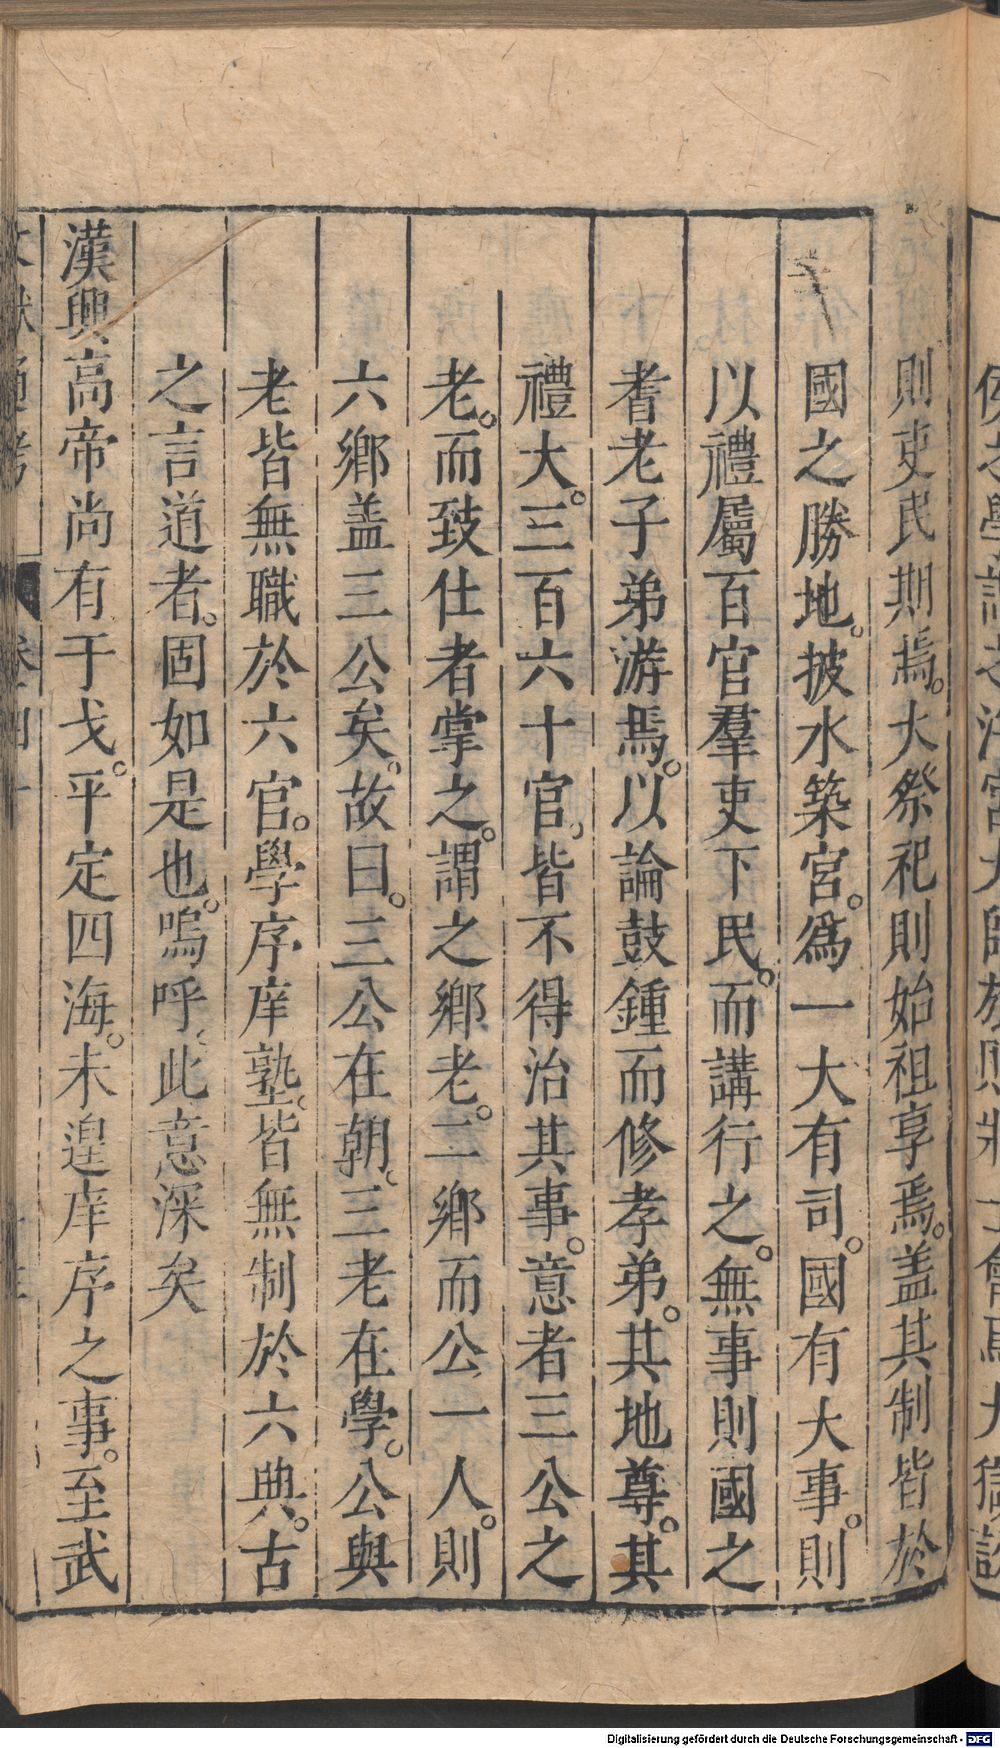 則吏民期焉。大祭祀則始祖享焉。盖其制皆於
國之勝地。披水築宮。爲一大有司。國有大事。則
以禮屬百官羣吏下民。而講行之。無事則國之
耆老子弟游焉。以論鼓鍾而修孝弟。其地尊。其
禮大。三百六十官。皆不得治其事。意者三公之
老。而致仕者掌之。謂之鄉老。二鄉而公一人。則
六鄉盖三公矣。故曰。三公在朝、三老在學。公與
老皆無職於六官。學序庠塾、皆無制於六典。古
之言道者。固如是也。嗚呼、此意深矣
漢興高帝尚有于戈。平定四海。未遑庠序之事。至武
Digitalisierung gefördert durch die Deutsche Forschungsgemeinschaft - DFG